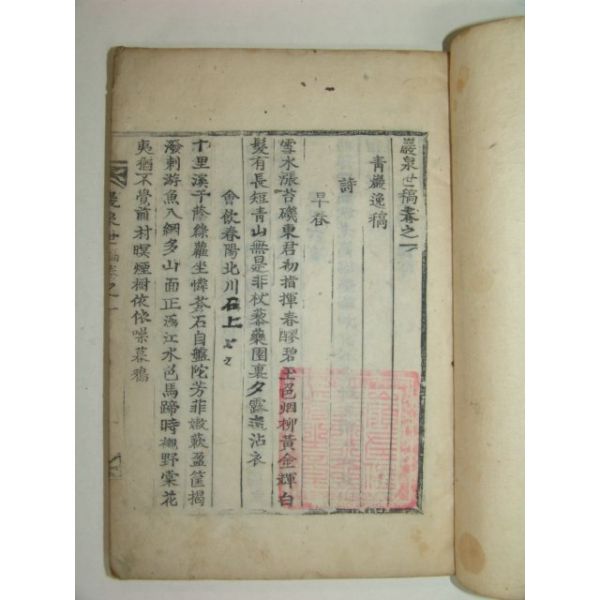 巖泉世稿卷之一
青巖逸稿
詩
早春
雪水漲苔磯東君初指揮春醪碧玉色烟柳黃金輝白
髮有長短青山無是非杖藜藥園裏夕露還沾衣
會飮春陽北川石上
十里溪干蔭綠蘿坐憐蒼石自盤陀芳菲嫩蕨盈筐揭
潑剌游魚入網多山面正蕩江水色馬蹄時襯野棠花
夷猶不覺前村暝煙樹依依噪暮鴉
巖泉世稿卷之一